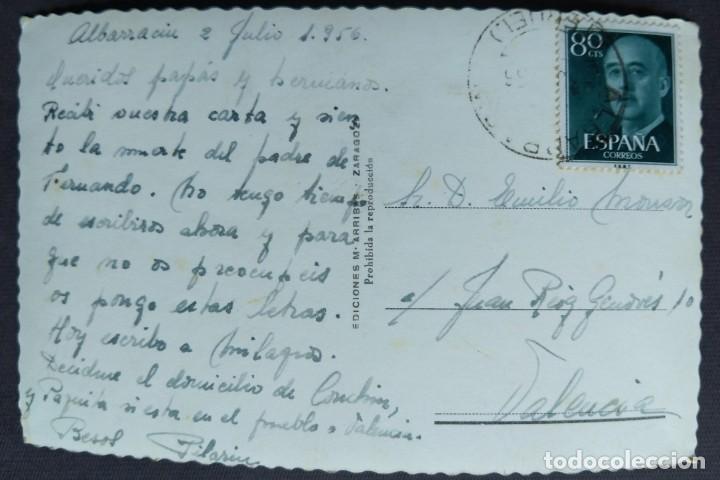 Albarracín 2 Julio 1.956.
Queridos papás y hermanos.
Recibí vuestra carta y sien
to la muerte del padre de
Fernando. No tengo tiempo
de escribiros ahora y para
que no os preocupéis
os pongo estas letras.
Hoy escribo a Milagros.
Decidme el domicilio de Conchin,
y Paquita si esta en el pueblo o Valencia.
Besos Pilarin
EDICIONES Mª ARRIBAS - ZARAGOZA
Prohibida la reproducción
80
CTS
ESPAÑA
CORREOS
Sr. D. Emilio Monzon
c/ Juan Reig Genovés 10
Valencia
todocoleccion.net